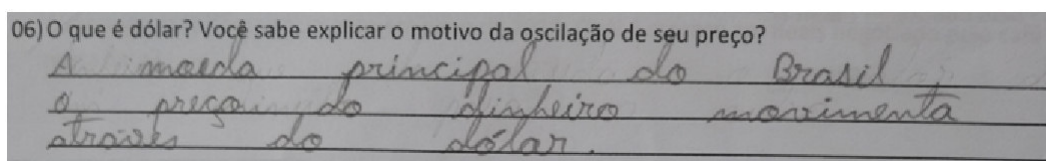 06) O que é dólar? Você sabe explicar o motivo da oscilação de seu preço?
A moeda principal do Brasil,
o preço do dinheiro movimenta
através do dólar.